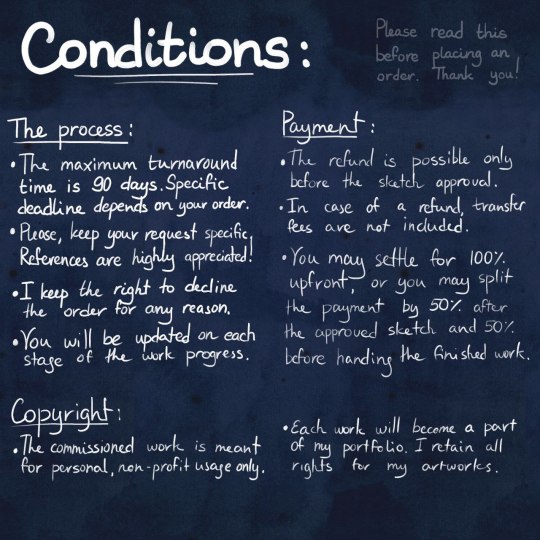 Conditions:
Please read this
before placing an
order. Thank you!
The process:
•The maximum turnaround
time is 90 days. Specific
deadline depends on your order.
•Please, keep your request specific.
References are highly appreciated!
•I keep the right to decline
the order for any reason.
•You will be updated on each
stage of the work progress.
Payment:
•The refund is possible only
before the sketch approval.
•In case of a refund, transfer
fees are not included.
•You may settle for 100%
upfront, or you may split
the payment by 50% after
the approved sketch and 50%
before handing the finished work.
Copyright:
•The commissioned work is meant
for personal, non-profit usage only.
•Each work will become a part
of my portfolio. I retain all
rights for my artworks.